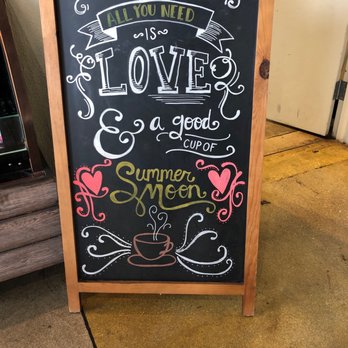 ALL YOU NEED
~IS~
LOVE
& a good
CUP OF
Summer
Moon